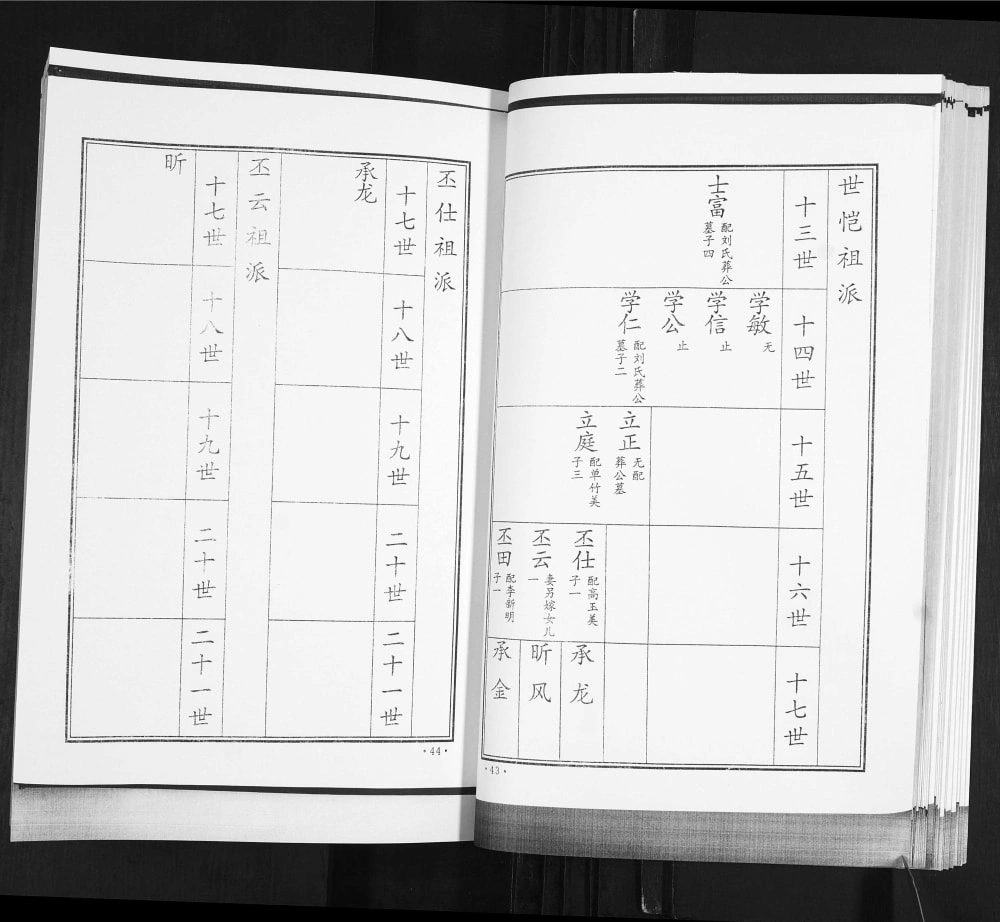 世恺祖派
十三世
士富
配刘氏葬公
墓子四
十四世
学敏
无
学信
止
学公
止
学仁
配刘氏葬公
墓子二
十五世
立正
无配
葬公墓
立庭
配单竹美
子三
十六世
丕仕
配高玉美
子一
丕云
妻另嫁女儿
一
丕田
配李新明
子一
十七世
承龙
昕风
承金
·43·
丕仕祖派
十七世
承龙
十八世
十九世
二十世
二十一世
丕云祖派
十七世
昕
十八世
十九世
二十世
二十一世
·44·